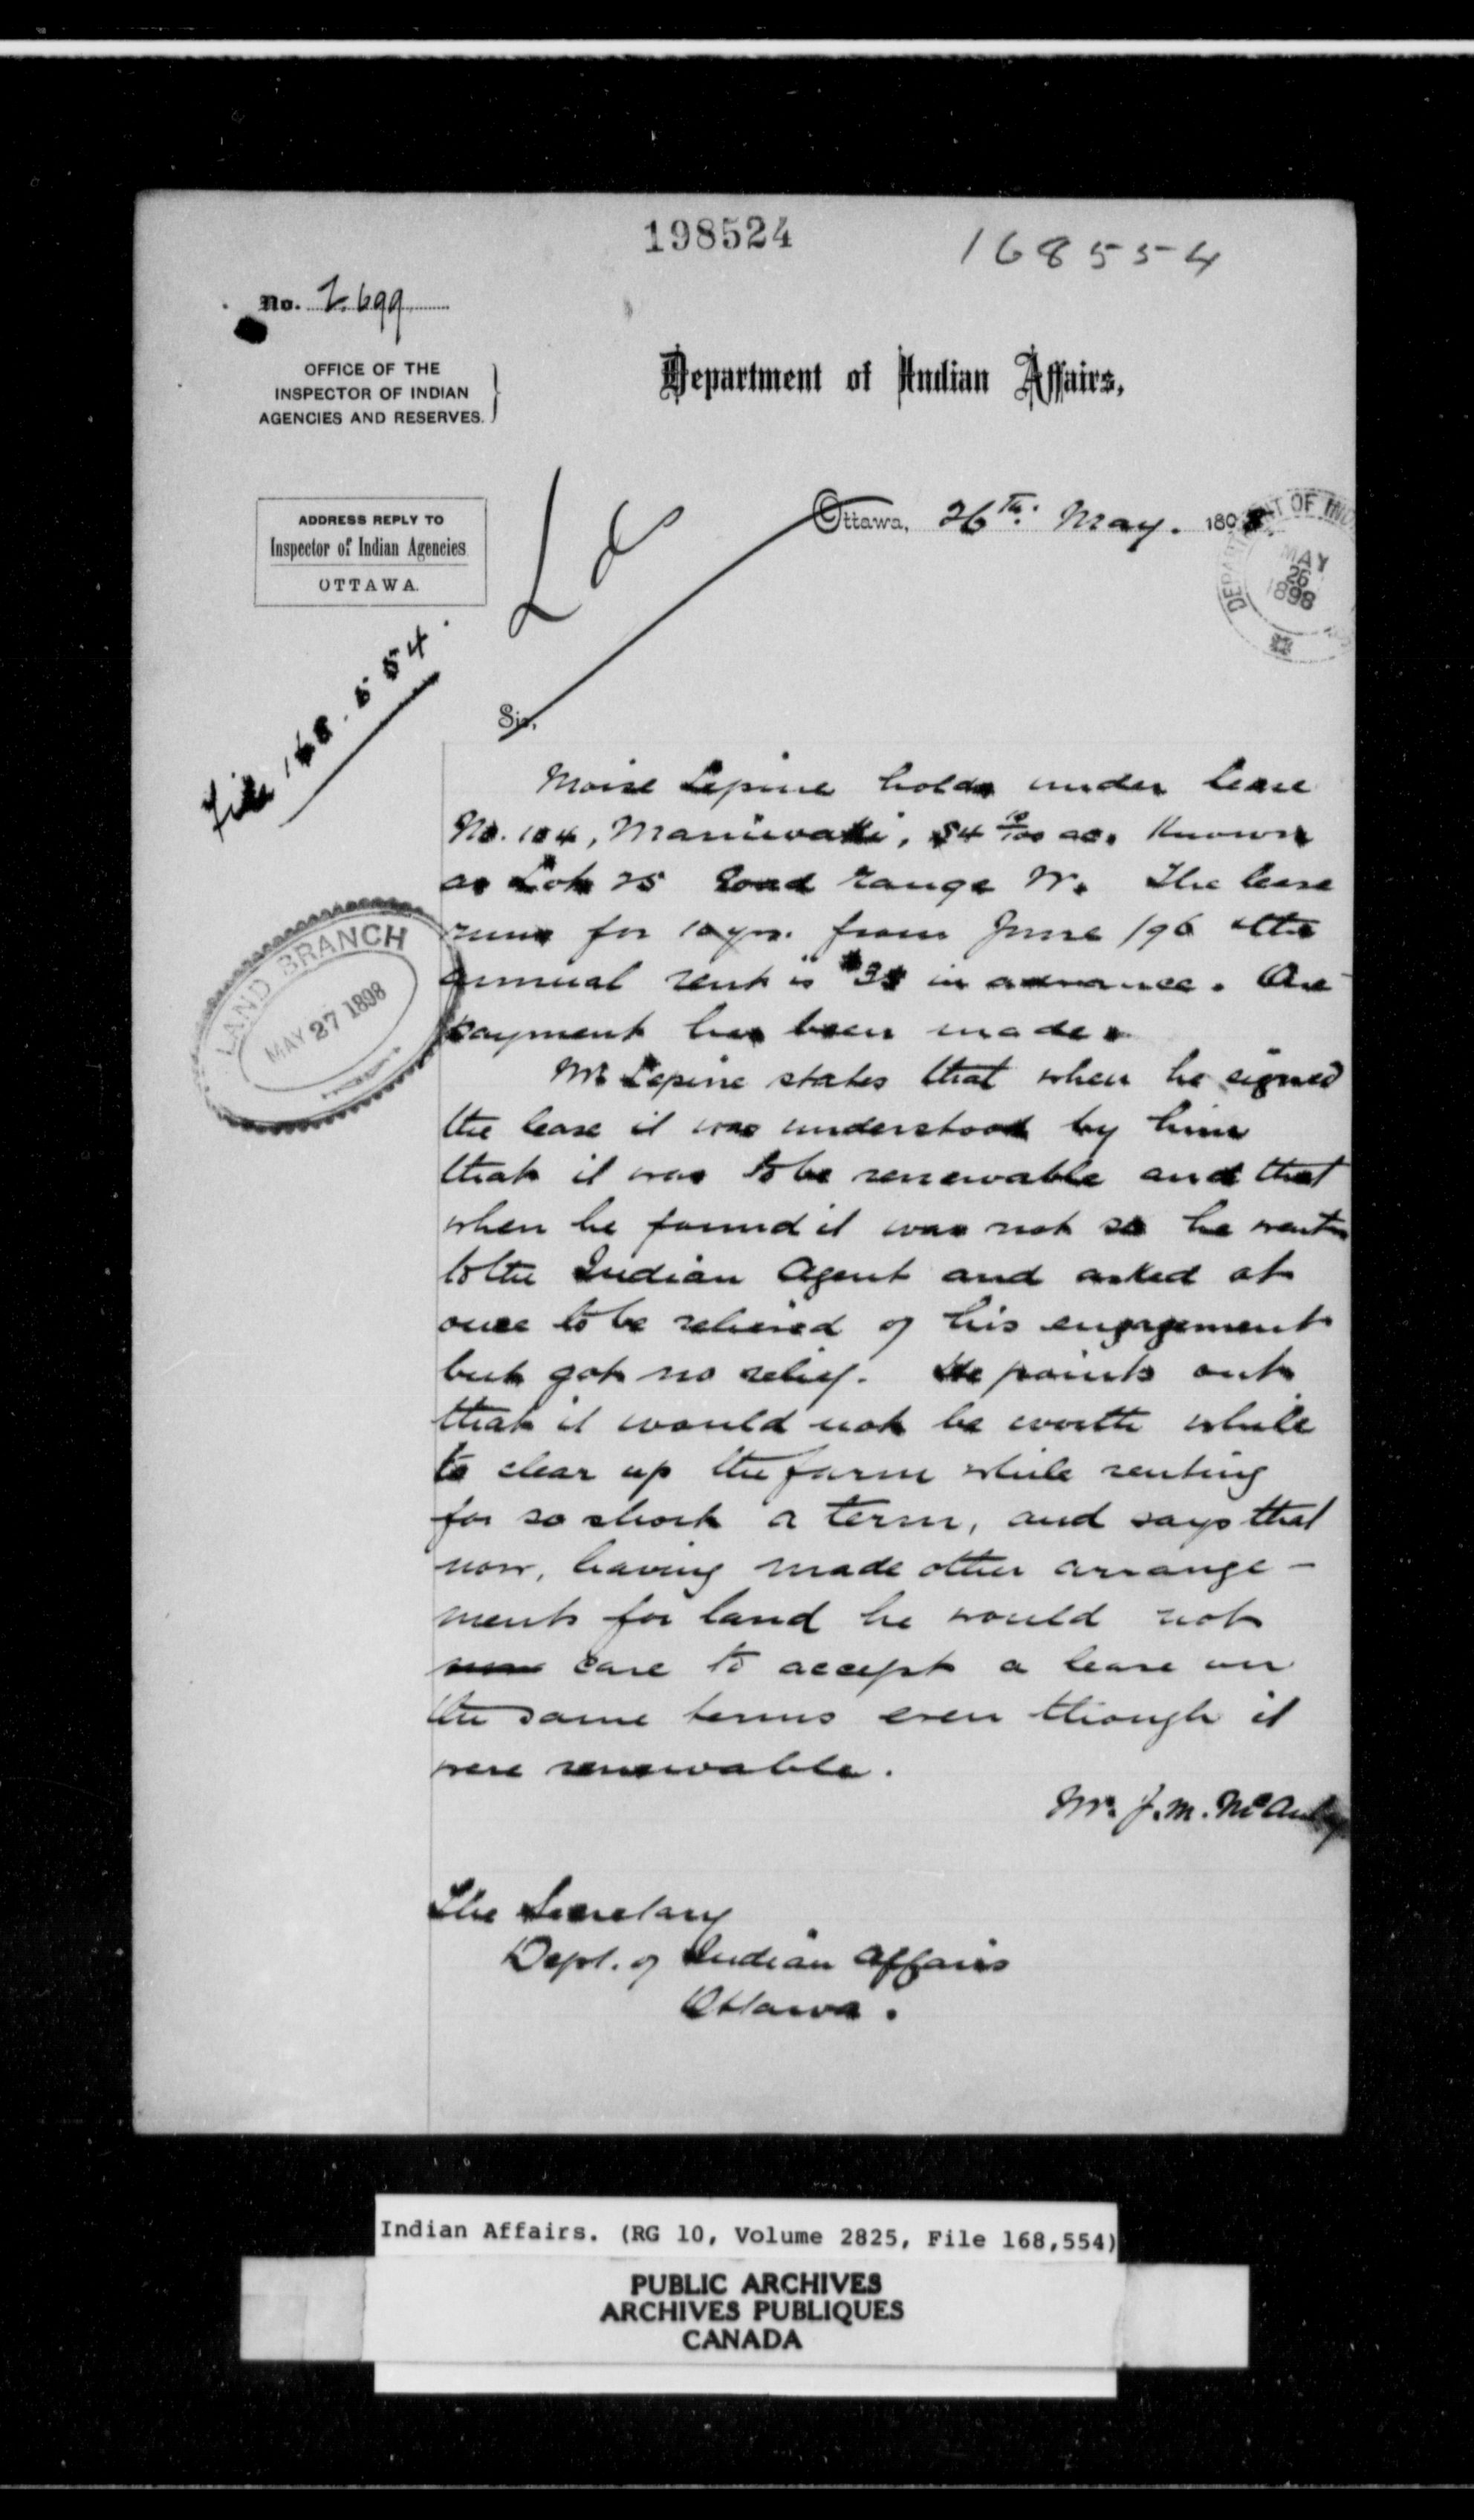 198524
168554
No. 2.699
OFFICE OF THE
INSPECTOR OF INDIAN
AGENCIES AND RESERVES.
Department of Indian Affairs,
ADDRESS REPLY TO
Inspector of Indian Agencies
OTTAWA.
Ottawa, 26th. May. 1898.
MAY
26
1898
File 168.554.
Sir,
Moise Lepine holds under lease
No. 104, Maniwaki, 54 10/100 ac. Known
as Lot 25 Road range W. The lease
runs for 10 yrs. from June /96 & the
annual rent is $35 in advance. One
payment has been made.
LAND BRANCH
MAY 27 1898
Mr Lepine states that when he signed
the lease it was understood by him
that it was to be renewable and that
when he found it was not so he went
to the Indian Agent and asked at
once to be relieved of his engagement
but got no relief. He points out
that it would not be worth while
to clear up the farm while renting
for so short a term, and says that
now, having made other arrange-
ments for land he would not
care to accept a lease on
the same terms even though it
were renewable.
Mr. J. M. McAulay
The Secretary
Dept. of Indian Affairs
Ottawa.
Indian Affairs. (RG 10, Volume 2825, File 168,554)
PUBLIC ARCHIVES
ARCHIVES PUBLIQUES
CANADA